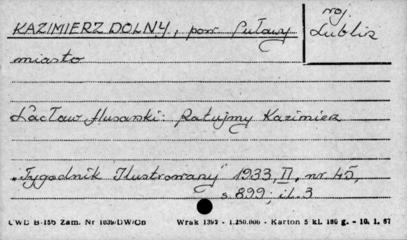 KAZIMIERZ DOLNY, pow. Puławy
woj.
Lublin
miasto
Wacław Husarski: Ratujmy Kazimierz
„Tygodnik Ilustrowany" 1933, II, nr. 45,
s. 899; il. 3
CWD B-155 Zam. Nr 1039/DW/Cb Wrak 1397 - 1.250.000 - Karton 5 kl. 180 g. - 10. 1. 67